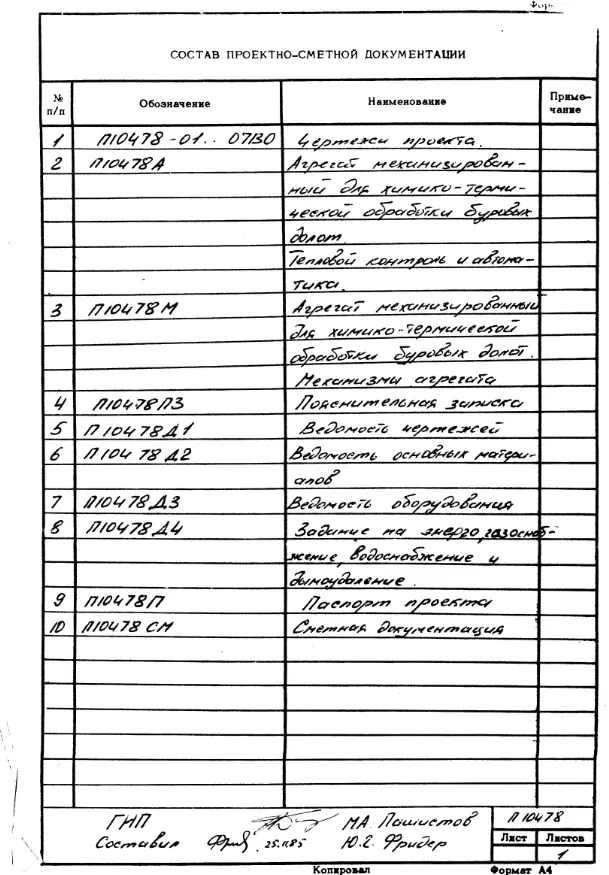 СОСТАВ ПРОЕКТНО-СМЕТНОЙ ДОКУМЕНТАЦИИ
№ п/п Обозначение Наименование Приме-чание
1 П10478-01.. 07ВО Чертежи проекта.
2 П10478А Агрегат механизирован-
ный для химико-терми-
ческой обработки буровых
долот.
Тепловой контроль и автома-
тика.
3 П10478М Агрегат механизированный
для химико-термической
обработки буровых долот.
Механизмы агрегата
4 П10478ПЗ Пояснительная записка
5 П10478Д1 Ведомость чертежей
6 П10478Д2 Ведомость основных матери-
алов
7 П10478Д3 Ведомость оборудования
8 П10478Д4 Задание на энерго, газоснаб-
жение, водоснабжение и
дымоудаление.
9 П10478П Паспорт проекта
10 П10478 СМ Сметная документация
ГИП М.А. П10478
Составил 25.11.85 Ю.Г. Фридер Лист Листов
1
Копировал Формат А4